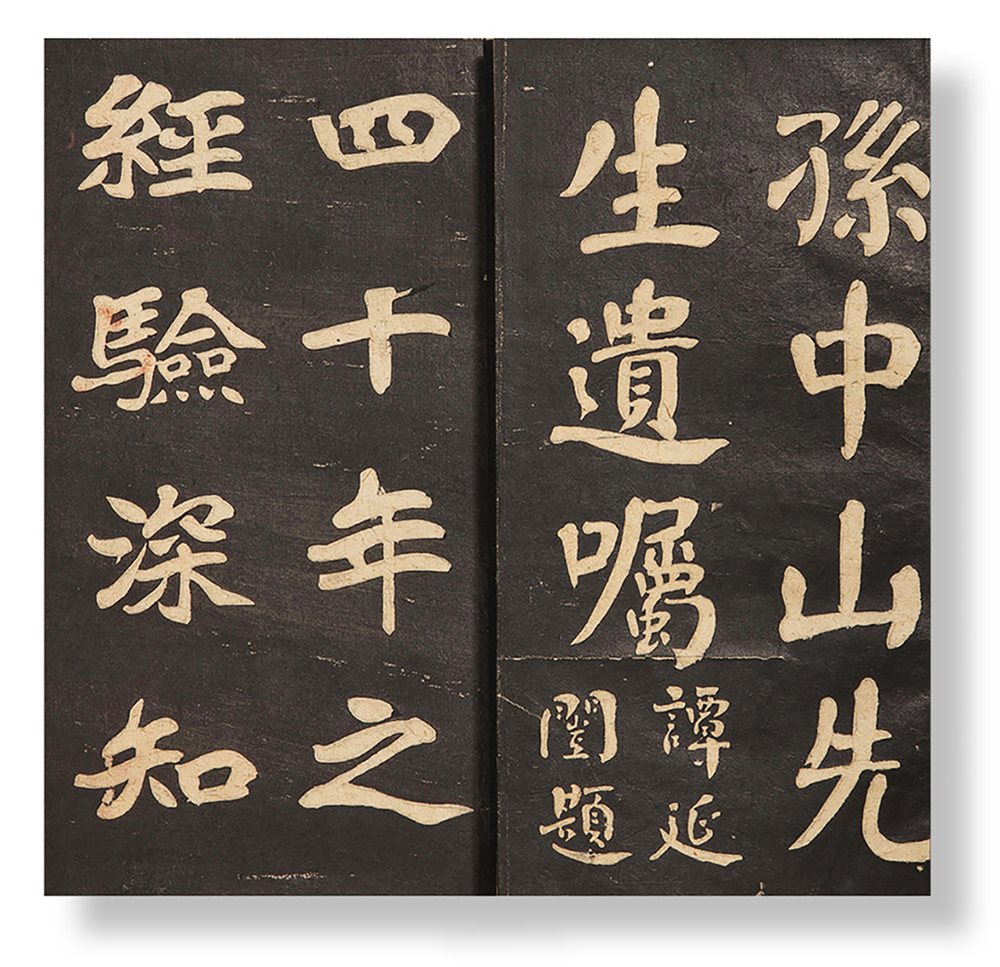 孫中山先
生遺囑
譚延
闓題
四十年之
經驗深知